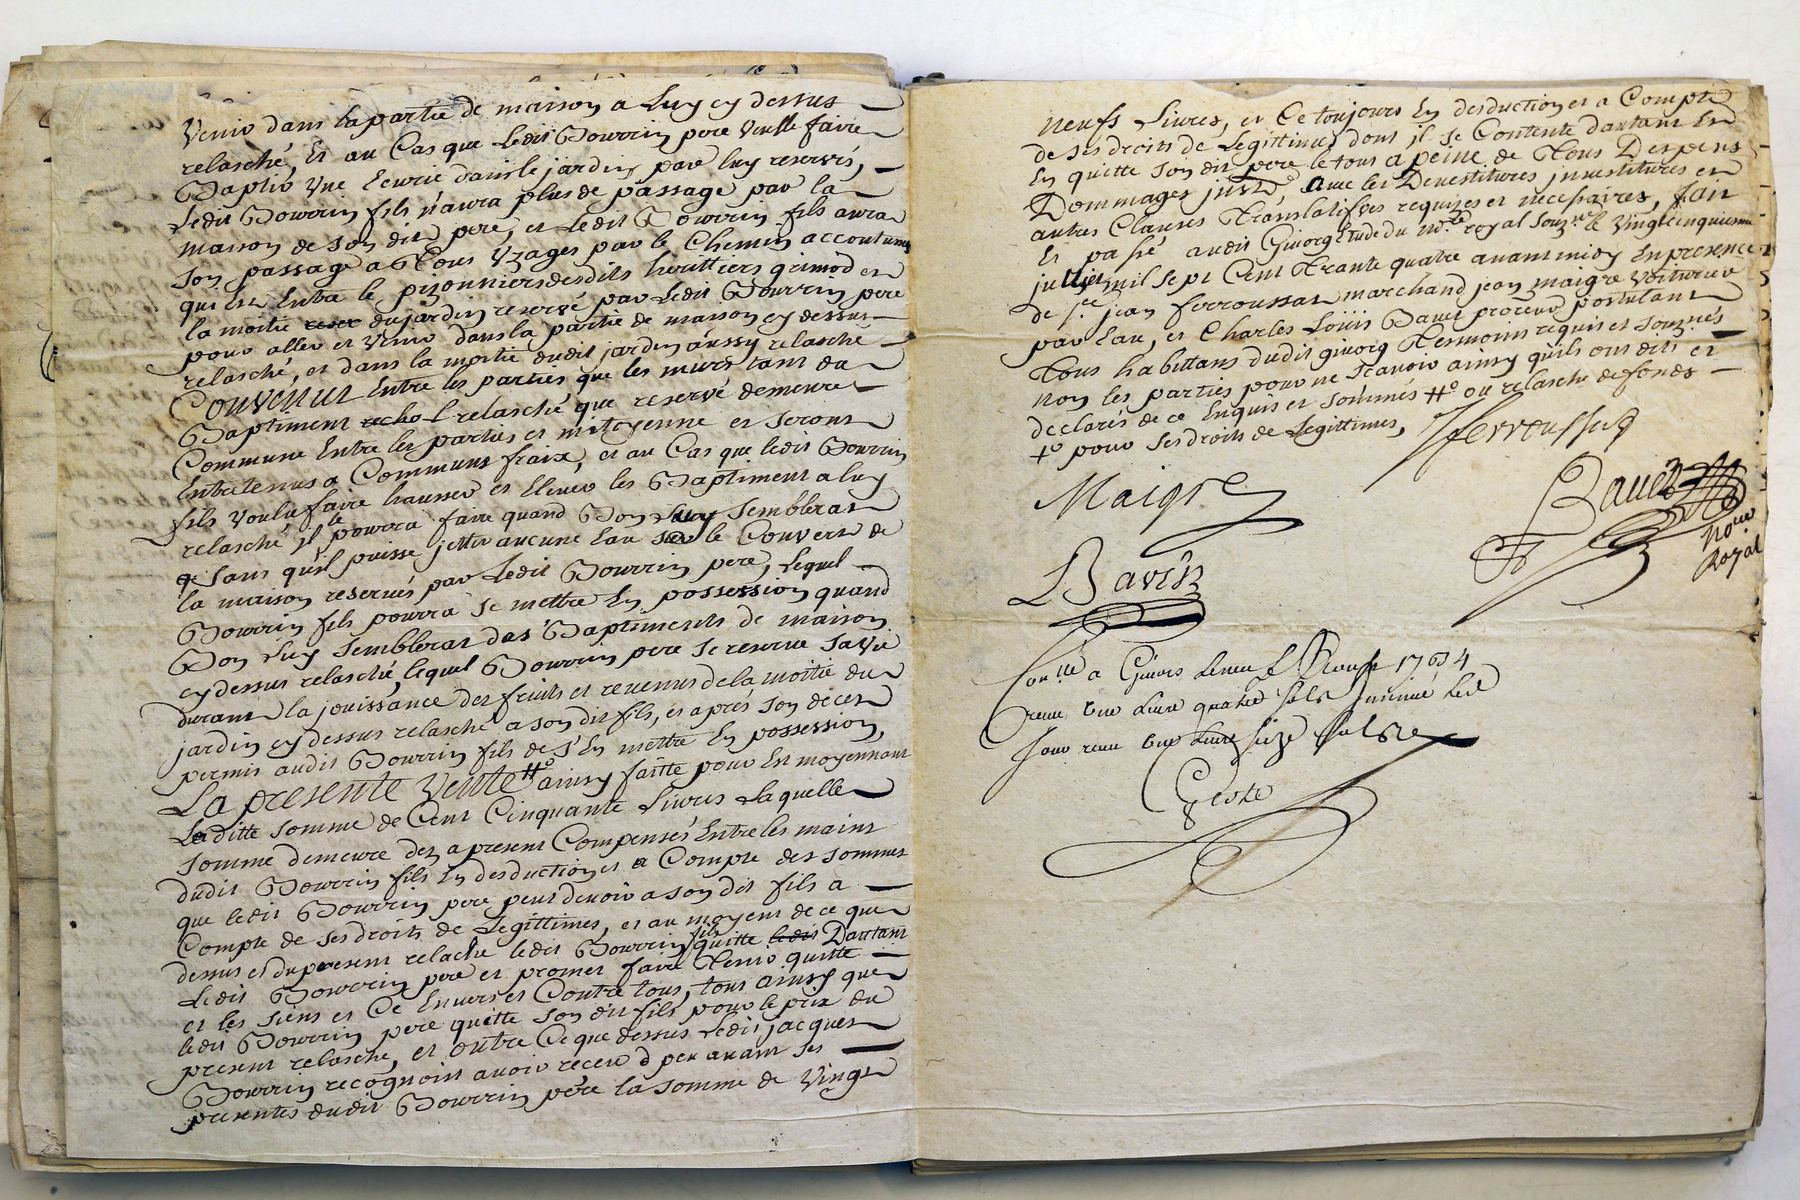 Venir dans la partie de maison a luy cy dessus
relasché, Et au Cas que ledit Bourrin pere Veulle faire
Baptir Une Ecurie dans le jardin par luy reservés,
ledit Bourrin fils n'aura plus de passage par la
maison de son dit pere, et ledit Bourrin fils aura
son passage a Tous Uzages par le Chemin accoutumé
qui Est Entre le pizonniers desdits heritiers grimod et
la moitié du jardin reservé par ledit Bourrin pere
pour aller et Venir dans la partie de maison cy dessus
relasché, et dans la moitié dudit jardin aussy relasché
Convenut Entre les parties que les murs tant du
Baptiment relasché que reservé demeure
Commune Entre les parties et mitoyenne et seront
Entretenus a Communs fraix, et au Cas que ledit Bourrin
fils Voulu faire hausser et Elever les Baptiment a luy
relasché il le pourra faire quand Bon luy semblerat
sans qu'il puisse jetter aucune Eau sur le Couvert de
la maison reservés par ledit Bourrin pere, lequel
Bourrin fils pourra se mettre En possession quand
Bon luy semblerat des Baptiments de maison
cy dessus relasché, lequel Bourrin pere se reserve sa vie
durant la jouissance des fruits et revenus de la moitié du
jardin cy dessus relasché a son dit fils, et après son deces
permis audit Bourrin fils de s'En mettre En possession,
La presente Vente #o ainsy faitte pour Et moyennant
La ditte somme de Cent Cinquante Livres Laquelle
somme demeure dez a present Compensés Entre les mains
dudit Bourrin fils En desduction et a Compte des sommes
que ledit Bourrin pere peut devoir a son dit fils a
Compte de ses droits de Legittimes, et au moyent de ce que
dessus et du present relaché ledit Bourrin fils quitte ledit Dautant
ledit Bourrin pere et promet faire Tenir quitte
et les siens et Ce Envers et Contre tous, tout ainsy que
ledit Bourrin pere quitte son dit fils pour le prix du
present relasché, et outre Ce que dessus ledit jacques
Bourrin recognoist avoir receu d peu avant ses
presentes dudit Bourrin pére la somme de Vingt
neufs Livres, et Ce toujours En desduction et a Compte
de ses droits de Legittimes dont il se Contente dautant Et
En quitte son dit pere le tous a peine de Tous Despens
Dommages avec les Devestitures investitures et
autres Clauses Translatifves requises et necessaires, fait
Et passé audit Givorg Etude du no.re royal souz.né le Vingt cinquieme
juillet mil sept Cent Trante quatre avant midy En presence
de s.r jean ferroussat marchand jean maigre Voiturier
par Eau, et Charles Loüis Bavet procureur postulant
Tous habittans dudit givorg Tesmoins requis et souz.nés
non les parties pour ne sçavoir ainsy qu'ils ont dit et
declarés de ce Enquis et sommés #o ou relasche de fonds
#o pour ses droits de Legittimes,
JFerroussat
Maigre
Bavet
Bavet
No.re
Royal
Con.llé a Givors le
receu Une Livre quatre sols Insinué led
Jour receu Une Livre seize sols